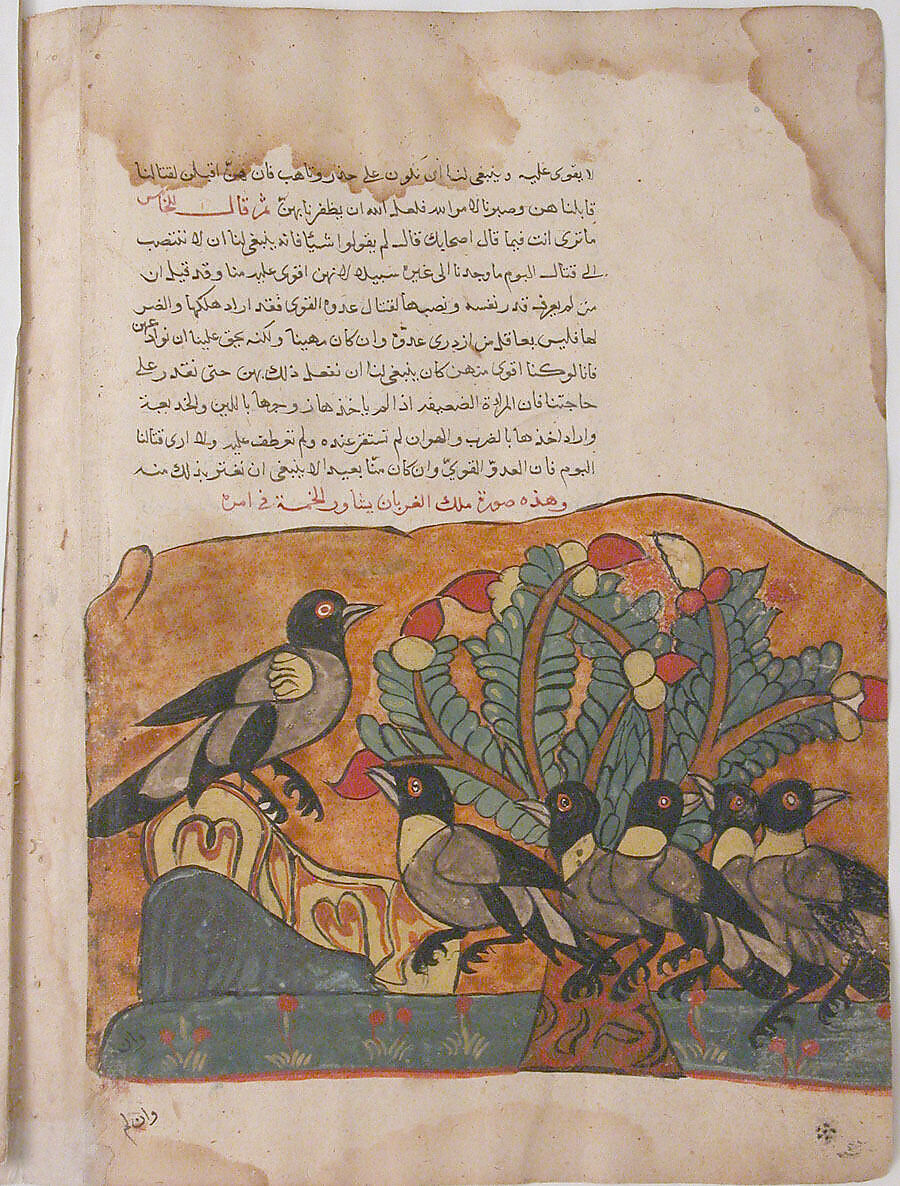 لا يقوى عليه وينبغى لنا ان نكون على حذر وتاهب فان هنّ اقبلن لقتالنا
قابلنا هن وصبرنا لامر الله فلعل الله ان يظفرنا بهنّ ثمّ قال للخامس
ما ترى انت فيما قال اصحابك قال لم يقولوا شيئا فانه ينبغى لنا ان لا ننتصب
الى قتال البوم ما وجدنا الى غيره سبيلا لانهن اقوى عليهن منا وقد قيل ان
من لم يعرف قدر نفسه ونصبها لقتال عدوه القوى فقد اراد هلكها والضر
لها فليس بعاقل من ازدرى عدوّه وان كان مهينا ولكنه يحق علينا ان نوادعهن
فانا لو كنا اقوى منهن كان ينبغى لنا ان نفعل ذلك بهن حتى نقدر على
حاجتنا فان المراة الضعيفه اذا لم ياخذها زوجها باللين والخديعة
واراد اخذها بالضرب والهوان لم تستقر عنده ولم تعطف عليه ولا ارى قتالنا
البوم فان العدوّ القوىّ وان كان منّا بعيدا لا ينبغى ان نغتر بذلك منه
وهذه صورة ملك الغربان يشاور الخمسة فى امره
وان
وان لم